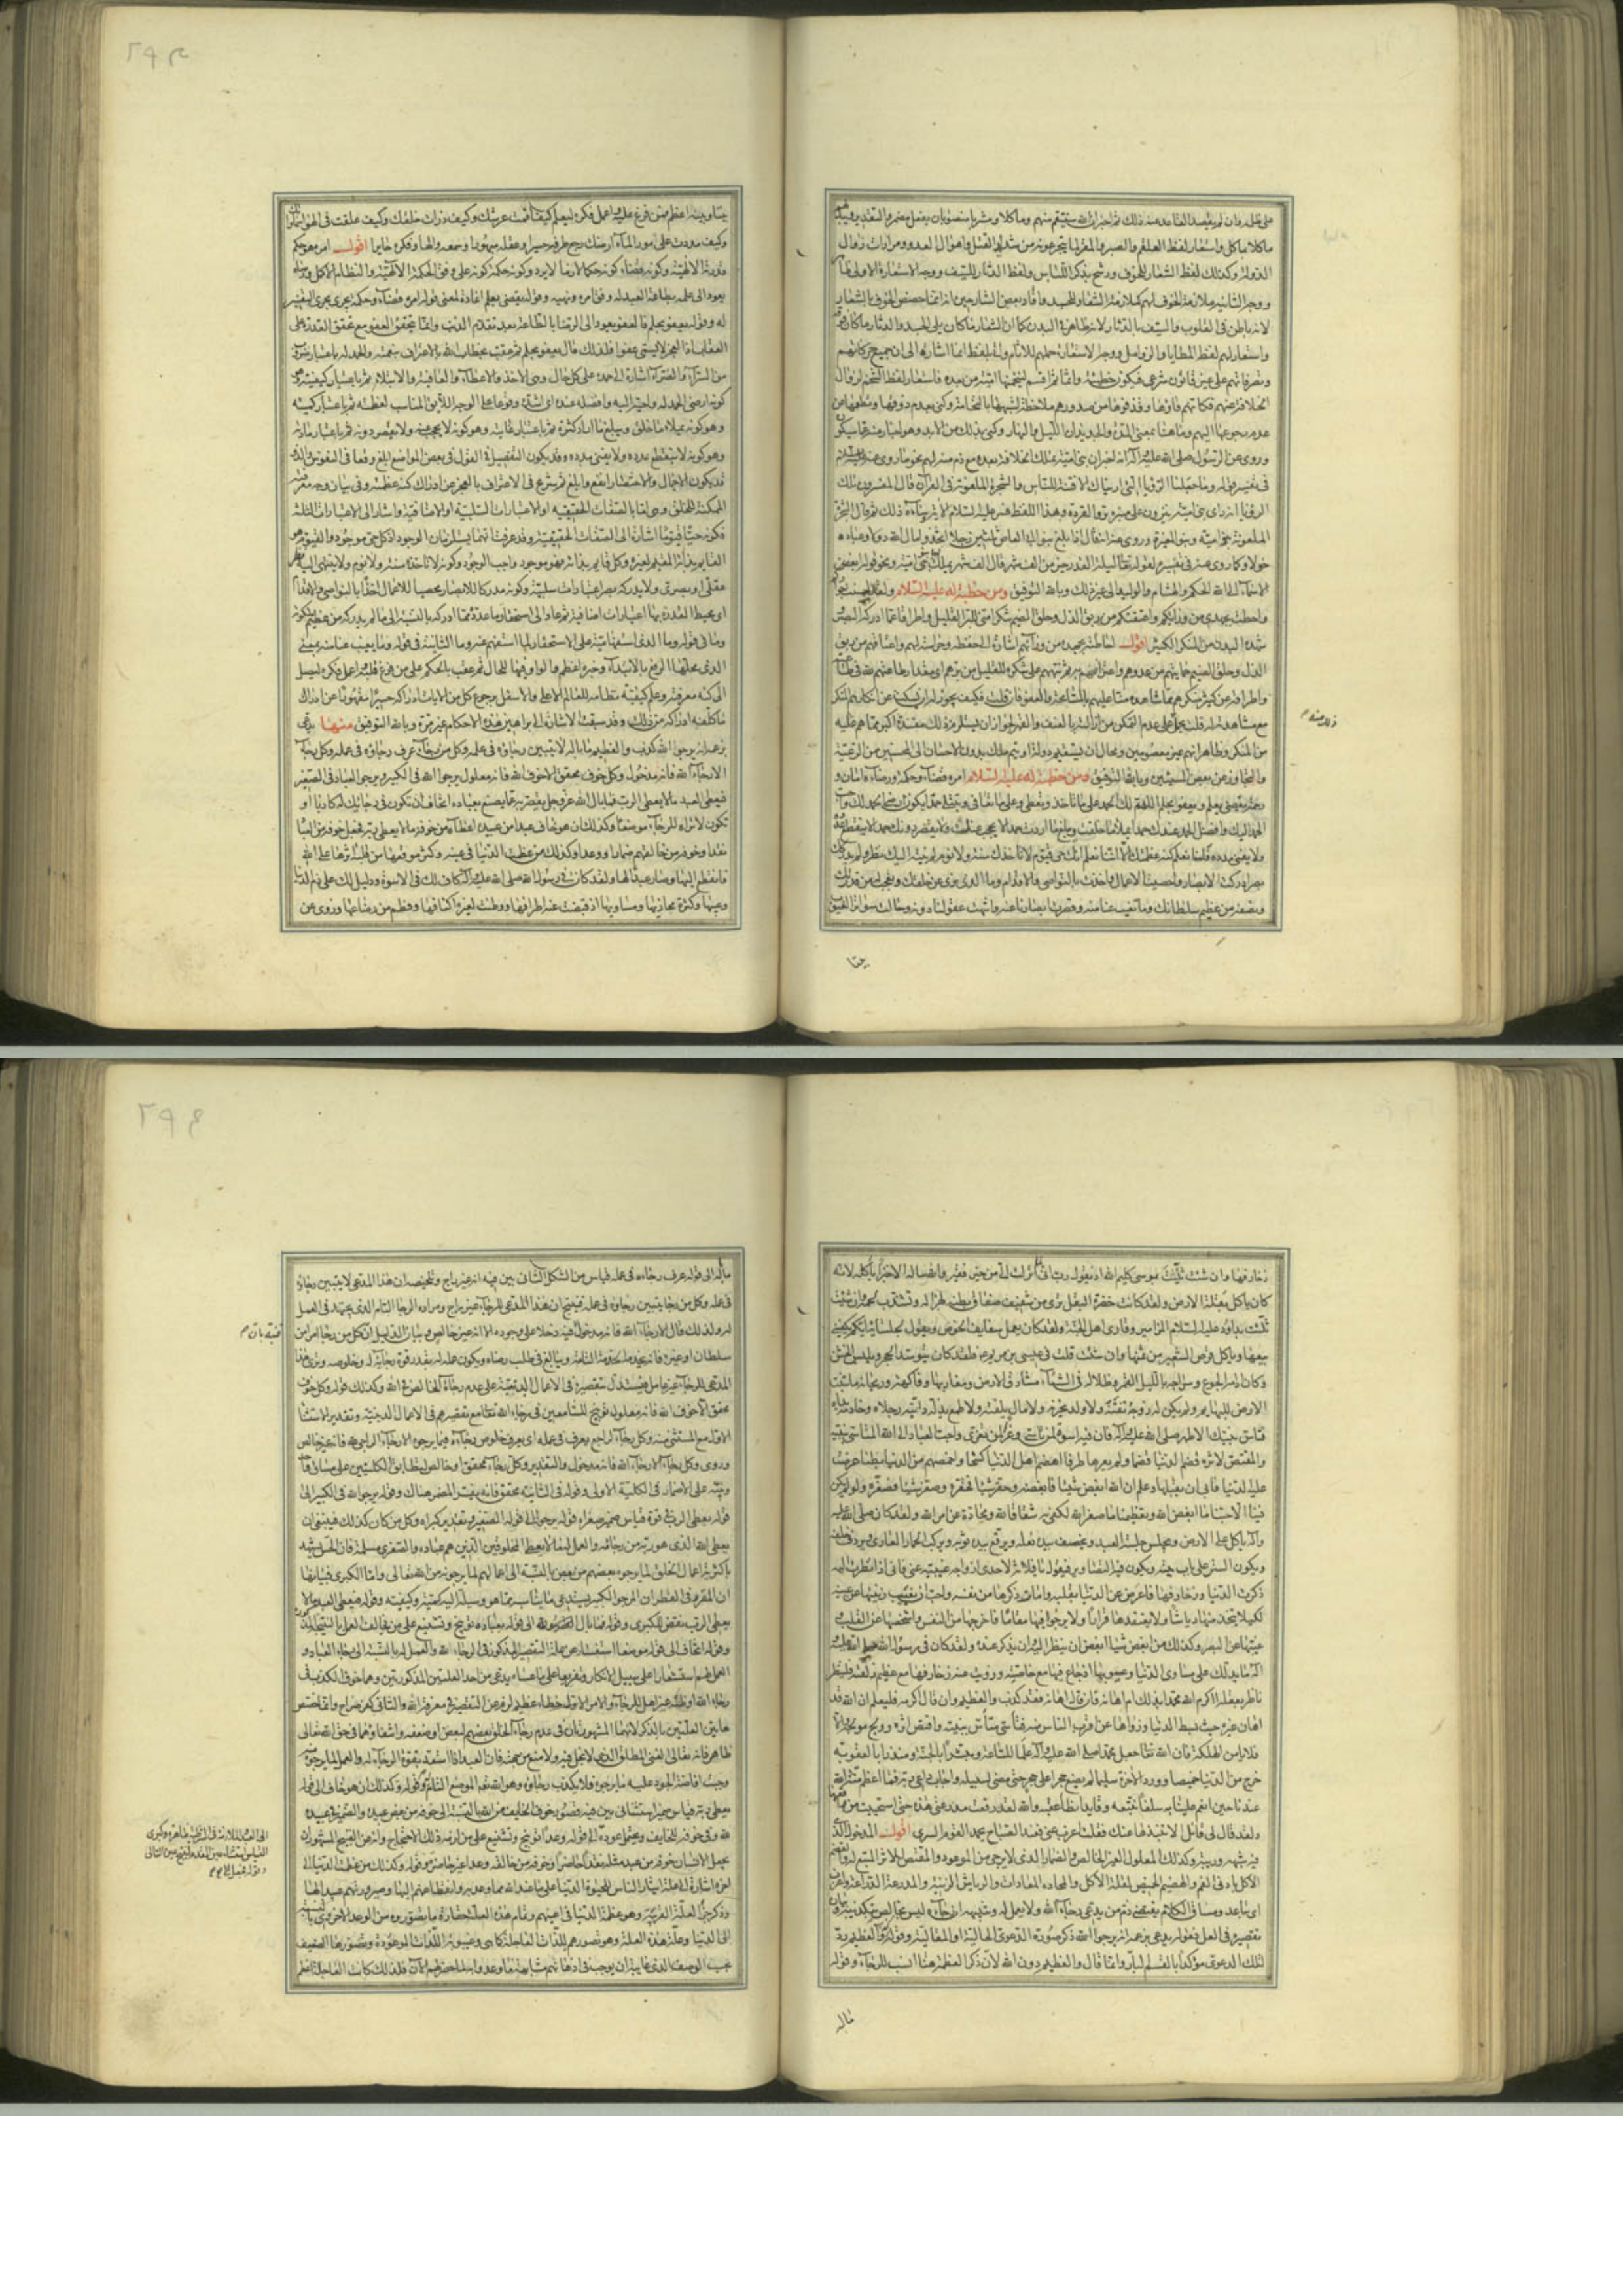 على ظلمه وان لم يقصد الفاعد عند ذلك ثم اخبر ان الله سينتقم منهم وماكلا ومشربا منصوبان بفعل مضمر والتقدير
ماكلا بماكل واستعار لفظ العلقم والصبر والمقر لما يتجرعونه من شدايد القتل واهوال العدو ومرارات زوال
الدولة وكذلك لفظ الشعار للخوف ورشح بذكر اللباس ولفظ الدثار للسيف ووجه الاستعارة الاولى
ووجه الثانية ملازمة الخوف لهم كملازمة الشعار للجسد وافاد بعض الشارحين انه انما خصص الخوف بالشعار
لانه باطن في القلوب والسيف بالدثار لانه ظاهر في البدن كما ان الشعار ما كان يلى الجسد والدثار ما كان فوقه
واستعار لهم لفظ المطايا والزوامل ووجه الاستعارة حملهم للاثام
وتصرفاتهم على غير قانون شرعى فيكون خطيئة وانما ثم اقسم لينخمنها امية من بعده فاستعار لفظ التنخم لزوال
الخلافة عنهم فكانهم قاؤها وقذفوها من صدورهم ملاحظة لشبهها بالنخامة وكنى بعدم ذوقها وتطعمها عن
عدم رجوعها اليهم وما هنا بمعنى المدة والجديدان الليل والنهار وكنى بذلك عن الابد وهو اخبار منه عما سيكون
وروى عن الرسول صلى الله عليه وآله انه اخبر ان بنى امية تملك الخلافة بعده مع ذم منه لهم نحو ما روى عنه
في تفسير قوله وما جعلنا الرؤيا التى اريناك الا فتنة للناس والشجرة الملعونة في القرآن قال المفسرون تلك
الرؤيا انه راى بنى امية ينزون على منبره نزو القردة وبهذا اللفظ فسر عليه السلام
الملعونة بنو امية وبنو المغيرة وروى عنه انه قال اذا بلغ بنو ابى العاص ثلثين رجلا اتخذوا مال الله دولا وعباده
خولا وكما روى عنه في تفسيره لقوله تعالى ليلة القدر خير من الف شهر قال الف شهر يملك بنى امية ونحو قوله ابغض
الاسماء الى الله الحكم والهشام والوليد الى غير ذلك وبالله التوفيق ومن خطبة له عليه السلام ولقد احسنت جواركم
واحطت بجهدى من ورائكم واعتقتكم من ربق الذل وحلق الضيم شكرا منى للبر القليل واطراقا عما ادركه البصر
وشهده البدن من المنكر الكثير اقول احاطته بجهده من ورائهم اشارة الى حفظه وحراسته لهم واعتاقهم من ربق
الذل وحلق الضيم حمايتهم من عدوهم
واطراقه عن كثير منكرهم مما شاهده مسامحة عليهم بالمشاحة والعفو فان قلت فكيف يجوز له ان يسكت عن انكاره المنكر
مع مشاهدته له قلت يحمل على عدم التمكن من ازالته بالعنف والقهر لجواز ان يستلزم ذلك مفسدة اكبر مما هم عليه
من المنكر وظاهر انهم غير معصومين ومحال ان يستقيم دولة او يتم ملك بدون الاحسان الى المحسنين من الرعية
والتجاوز عن بعض المسيئين وبالله التوفيق ومن خطبة له عليه السلام امره قضاء وحكمة ورضاه امان و
رحمة يقضى بعلم ويعفو بحلم اللهم لك الحمد على ما تاخذ وتعطى وعلى ما تعافى وتبتلى حمدا يكون ارضى الحمد لك واحب
الحمد اليك وافضل الحمد عندك حمدا يملاء ما خلقت ويبلغ ما اردت حمدا لا يحجب عنك ولا يقصر دونك حمدا لا ينقطع عدده
ولا يفنى مدده فلسنا نعلم كنه عظمتك الا انا نعلم انك حى قيوم لا تاخذك سنة ولا نوم لم ينته اليك نظر ولم يدركك
بصر ادركت الابصار واحصيت الاعمال واخذت بالنواصى والاقدام وما الذى نرى من خلقك ونعجب له من قدرتك
ونصفه من عظيم سلطانك وما تغيب عنا منه وقصرت ابصارنا عنه وانتهت عقولنا دونه وحالت سواتر الغيوب
بيننا
بيننا وبينه اعظم فمن فرغ قلبه واعمل فكره ليعلم كيف اقمت عرشك وكيف ذرات خلقك وكيف علقت في الهواء سمواتك
وكيف مددت على مور الماء ارضك رجع طرفه حسيرا وعقله مبهورا وسمعه والها وفكره حايرا اقول امره هو حكم
قدرته الالهية وكونه قضاء كونه حكما لازما لا يرد وكونه حكمة كونه على وفق الحكمة الالهية والنظام الاكمل
يعود الى علمه بطاعة العبد له وقوله يقضى بعلم اعادة لمعنى قوله امره قضاء وحكمة يجرى مجرى التفسير
له وقوله يعفو بحلم فالعفو يعود الى الرضا بالطاعة بعد تقدم الذنب وانما يتحقق العفو مع تحقق القدرة على
العقاب اذ العجز لا يسمى عفوا فلذلك قال يعفو بحلم ثم عقب بخطاب الله بالاعتراف بنعمته والحمد له باعتبار
من السراء والضراء اشارة الى حمده على كل حال وهى الاخذ والاعطاء والعافية والابتلاء ثم باعتبار كيفيته
كونه ارضى الحمد له واحبه اليه وافضله عنده اى اشد وقوعا على الوجه اللائق المناسب لعظمته ثم باعتبار كميته
وهو كونه يملاء ما خلق ويبلغ ما اراد كثرة ثم باعتبار غايته وهو كونه لا يحجب عنه ولا يقصر دونه ثم باعتبار مادته
وهو كونه لا ينقطع عدده ولا يفنى مدده وقد يكون التفصيل في القول في بعض المواضع ابلغ وقعا في النفوس والذ
وقد يكون الاجمال والاختصار انفع وابلغ ثم شرع في الاعتراف بالعجز عن ادراك كنه عظمته وفي بيان وجه معرفته
الممكنة للخلق وهى اما بالصفات الحقيقية او الاعتبارات السلبية او الاضافية واشار الى الاعتبارات الثلثة
فكونه حيا قيوما اشارة الى الصفات الحقيقية وقد عرفت انهما يستلزمان الوجود اذ كل حى موجود والقيوم هو
القايم بذاته المقيم لغيره وكل قايم بذاته فهو موجود واجب الوجود وكونه لا تاخذه سنة ولا نوم ولا ينتهى اليه نظر
عقلى او بصرى ولا يدركه بصر اعتبارات سلبية وكونه مدركا للابصار محصيا للاعمال اخذا بالنواصى والاقدام
اى محيط القدرة بها اعتبارات اضافية ثم عاد الى استحقار ما عدده مما ادركه بالنسبة الى ما لم يدركه من عظيم ملكوته
وما في قوله وما الذى استفهامية على الاستحقار لما استفهم عنه وما الثانية في قوله وما يغيب عنا منه بمعنى
الذى محلها الرفع بالابتداء وخبره اعظم والواو فيها للحال ثم عقب بالحكم على من فرغ قلبه واعمل فكره ليصل
الى كنه معرفته وعلم كيفية نظامه للعالم الاعلى والاسفل برجوع كل من الايات ادراكه حسيرا مقهورا عن ادراك
ما كلفه ادراكه من ذلك وقد سبقت الاشارة الى براهين هذه الاحكام غير مرة وبالله التوفيق منها يدعى
بزعمه انه يرجو الله كذب والعظيم ما باله لا يتبين رجاؤه في عمله وكل من رجا عرف رجاؤه في عمله وكل رجاء
الا رجاء الله فانه مدخول وكل خوف محقق الا خوف الله فانه معلول يرجو الله في الكبير ويرجو العباد في الصغير
فيعطى العبد ما لا يعطى الرب فما بال الله عز وجل يقصر به عما يصنع بعباده اتخاف ان تكون في رجائك له كاذبا او
تكون لا تراه للرجاء موضعا وكذلك ان هو خاف عبدا من عبيده اعطاه من خوفه ما لا يعطى ربه فجعل خوفه من العباد
نقدا وخوفه من خالقهم ضمارا ووعدا وكذلك من عظمت الدنيا في عينه وكبر موقعها من قلبه اثرها على الله
فانقطع اليها وصار عبدا لها ولقد كان في رسول الله صلى الله عليه وآله كاف لك في الاسوة ودليل لك على ذم الدنيا
وعيبها وكثرة مخازيها ومساويها اذ قبضت عنه اطرافها ووطئت لغيره اكنافها وفطم من رضاعها وزوى عن
زخارفها وان شئت ثلثت بموسى كليم الله اذ يقول رب انى لما انزلت الى من خير فقير والله ما ساله الا خبزا ياكله لانه
كان ياكل بقلة الارض ولقد كانت خضرة البقل ترى من شفيف صفاق بطنه لهزاله وتشذب لحمه وان شئت
ثلثت بداود عليه السلام صاحب المزامير وقارى اهل الجنة ولقد كان يعمل سفايف الخوص بيده ويقول لجلسائه ايكم يكفينى
بيعها وياكل قرص الشعير من ثمنها وان شئت قلت في عيسى بن مريم عليه فلقد كان يتوسد الحجر ويلبس الخشن
وكان ادامه الجوع وسراجه بالليل القمر وظلاله في الشتاء مشارق الارض ومغاربها وفاكهته وريحانه ما تنبت
الارض للبهايم ولم يكن له زوجة تفتنه ولا ولد يحزنه ولا مال يلفته ولا طمع يذله دابته رجلاه وخادمه يداه
فتاس بنبيك الاطهر صلى الله عليه وآله فان فيه اسوة لمن تاسى وعزاء لمن تعزى واحب العباد الى الله المتاسى بنبيه
والمقتص لاثره قضم الدنيا قضما ولم يعرها طرفا اهضم اهل الدنيا كشحا واخمصهم من الدنيا بطنا عرضت
عليه الدنيا فابى ان يقبلها وعلم ان الله ابغض شيئا فابغضه وحقر شيئا فحقره وصغر شيئا فصغره ولو لم يكن
فينا الا حبنا ما ابغض الله وتعظيمنا ما صغر الله لكفى به شقاقا لله ومحادة عن امر الله ولقد كان صلى الله عليه
وآله ياكل على الارض ويجلس جلسة العبد ويخصف بيده نعله ويرقع بيده ثوبه ويركب الحمار العارى ويردف خلفه
ويكون الستر على باب بيته ويكون فيه التصاوير فيقول يا فلانة لاحدى ازواجه غيبيه عنى فانى اذا نظرت اليه
ذكرت الدنيا وزخارفها فاعرض عن الدنيا بقلبه وامات ذكرها من نفسه واحب ان تغيب زينتها عن عينه
لكيلا يتخذ منها رياشا ولا يعتقدها قرارا ولا يرجو فيها مقاما فاخرجها من النفس واشخصها عن القلب و
غيبها عن البصر وكذلك من ابغض شيئا ابغض ان ينظر اليه وان يذكر عنده ولقد كان في رسول الله صلى الله عليه
وآله ما يدلك على مساوى الدنيا وعيوبها اذ جاع فيها مع خاصته وزويت عنه زخارفها مع عظيم زلفته فلينظر
ناظر بعقله اكرم الله محمدا بذلك ام اهانه فان قال اهانه فقد كذب والعظيم وان قال اكرمه فليعلم ان الله قد
اهان غيره حيث بسط الدنيا وزواها عن اقرب الناس منه فتاسى متاس بنبيه واقتص اثره وولج مولجه والا
فلا يامن الهلكة فان الله تعالى جعل محمدا صلى الله عليه وآله علما للساعة ومبشرا بالجنة ومنذرا بالعقوبة
خرج من الدنيا خميصا وورد الاخرة سليما لم يضع حجرا على حجر حتى مضى لسبيله واجاب داعى ربه فما اعظم منة الله
عندنا حين انعم علينا به سلفا نتبعه وقايدا نطاء عقبه والله لقد رقعت مدرعتى هذه حتى استحييت من راقعها
ولقد قال لى قائل الا تنبذها عنك فقلت اعزب عنى فعند الصباح يحمد القوم السرى اقول المدخول الذى
فيه شبهة وريبة وكذلك المعلول الغير الخالص والضمار الذى لا يرجى من الموعود والمقتص للاثر المتبع له والقضم
الاكل بادنى الفم والهضيم الخميص لقلة الاكل والمحادة المعادات والرياش الزينة والمدرعة الدراعة واعزب
اى تباعد ومساق الكلام يقتضى ذم من يدعى رجاء الله ولا يعمل له وتنبيهه ان رجاءه ليس بخالص بتكذيبه وبيان
تقصيره في العمل فقوله يدعى بزعمه انه يرجو الله ذكر صورة الدعوى الحالية او المقالية وقوله كذب والعظيم رد
لتلك الدعوى مؤكدا بالقسم البار وانما قال والعظيم دون الله لان ذكر العظمة هنا انسب للرجاء وقوله
ما باله
ما باله الى قوله عرف رجاؤه في عمله قياس من الشكل الثانى بين فيه انه غير راج وتلخيصه ان هذا المدعى لا يتبين رجاؤه
في عمله وكل من رجا يتبين رجاؤه في عمله فينتج ان هذا المدعى للرجاء غير راج ومراده الرجا التام الذى يجتهد في العمل
له ولذلك قال الا رجاء الله فانه مدخول فنبه بدخلاء على وجوده الا انه غير خالص وبيان الدليل ان كل من رجا امرا من
سلطان او غيره فانه يخدمه الخدمة التامة ويبالغ في طلب رضاه ويكون عمله له بقدر قوة رجائه له وخلوصه ونرى هذا
المدعى للرجاء غير عامل فيستدل بتقصيره في الاعمال الدينية على عدم رجائه الخالص في الله وكذلك قوله وكل خوف
محقق الا خوف الله فانه معلول توبيخ للسامعين في رجاء الله تعالى مع تقصيرهم في الاعمال الدينية وتقدير الاستثناء
الاول مع المستثنى منه وكل رجاء لراج يعرف في عمله اى يعرف خلوص رجائه فيما يرجوه الا رجاء الراجى لله فانه غير خالص
وروى وكل رجاء الا رجاء الله فانه مدخول والتقدير وكل رجاء محقق او خالص لتطابق الكليتين على مساق واحد
وينبه على الاضمار في الكلية الاولى قوله في الثانية محقق فانه يفسر المضمر هناك وقوله يرجو الله في الكبير الى
قوله يعطى الرب في قوة قياس ضمير صغراه قوله يرجو الى قوله الصغير وتقدير كبراه وكل من كان كذلك فينبغى ان
يعطى الله الذى هو ربه من رجائه والعمل له ما لا يعطى المخلوقين الذين هم عباده والصغرى مسلمة فان الحس يشهد
باكثرية اعمال الخلق لما يرجوه بعضهم من بعض بالنسبة الى اعمالهم لما يرجونه من الله تعالى واما الكبرى فبيانها
ان المقرر في الفطر ان المرجو الكبير يستدعى ما يناسبه مما هو وسيلة اليه كمية وكيفية وقوله فيعطى العبد ما لا
يعطى الرب نقض للكبرى وقوله فما بال الله الى قوله بعباده توبيخ وتشنيع على من يخالف العمل بالنتيجة المذكورة
وقوله اتخاف الى قوله موضعا استفسار عن علة التقصير المذكور في الرجاء لله والعمل له بالنسبة الى رجاء العباد و
العمل لهم استفسارا على سبيل الانكار وتقريعا على ما عساه يدعى من احد العلتين المذكورتين وهما خوف الكذب في
رجاء الله او ظنه غير اهل للرجاء والامر الاول خطاء عظيم لزم عن التقصير في معرفة الله والثانى كفر صراح وانما خصص
هاتين العلتين بالذكر لانهما المشهورتان في عدم رجاء الخلق بعضهم لبعض او ضعفه وانتفاؤهما في حق الله تعالى
ظاهر فانه تعالى الغنى المطلق الذى لا بخل فيه ولا منع من جهته فان العبد اذا استعد بقوة الرجاء له والعمل لما يرجوه منه
وجبت افاضة الجود عليه ما يرجوه فلا يكذب رجاؤه وهو الله نعم الموضع التام له وقوله وكذلك ان هو خاف الى قوله
يعطى ربه قياس ضمير استثنائى بين فيه قصور خوف الخايف من الله بالنسبة الى خوفه من بعض عبيده والضمير في عبيده
لله وفي خوفه للخايف ويحتمل عوده الى الله وقوله وعدا توبيخ وتشنيع على من لزمه ذلك الاحتجاج وانه من القبيح المشهور ان
يجعل الانسان خوفه من عبد مثله نقدا حاضرا وخوفه من خالقه وعدا غير حاضر وقوله وكذلك من عظمت الدنيا الى
اخره اشارة الى علة ايثار الناس للحيوة الدنيا على ما عند الله مما وعد به وانقطاعهم اليها وصيرورتهم عبيدا لها
وذكر جزء العلة القريبة وهو عظمة الدنيا في اعينهم وتمام هذه العلة حقارة ما يتصوره من الوعد الاخروى بالنسبة
الى الدنيا وعلة هذه العلة وهو تصورهم للذات العاجلة كما هى وغيبوبة اللذات الموعودة وتصورها الضعيف
بحسب الوصف الذى غايته ان يوجب في اذهانهم مشابهة ما وعدوا به لما حضر لهم الان فلذلك كانت العاجلة اعظم